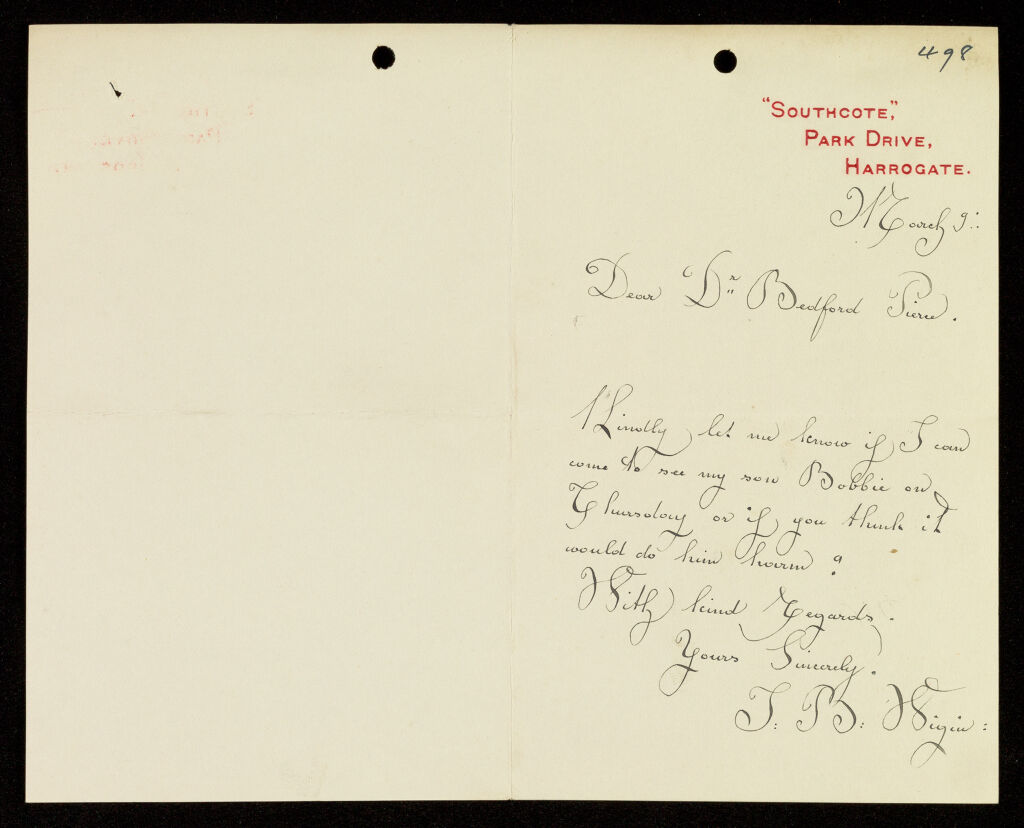 498
"SOUTHCOTE,"
PARK DRIVE,
HARROGATE.
March 9:
Dear Dr Bedford Pierce.
Kindly let me know if I can
come to see my son Bobbie on
Thursday or if you think it
would do him harm?
With kind Regards.
Yours Sincerely.
J. B: Wigin: